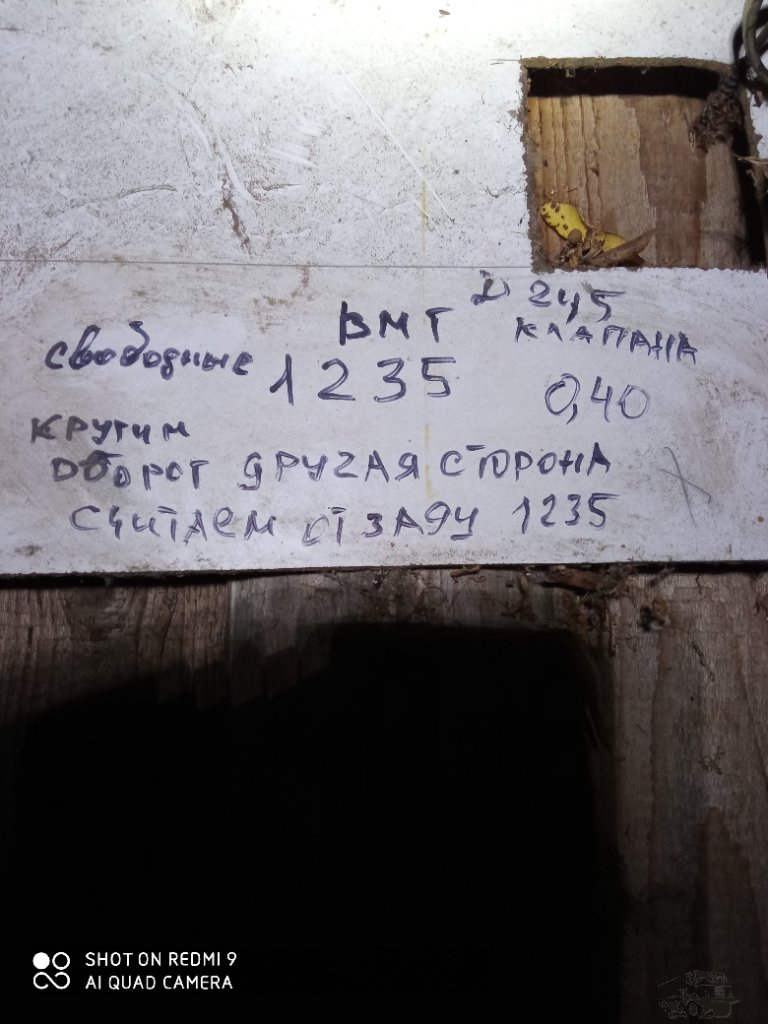 Д 245
ВМТ КЛАПАНА
свободные 1235 0,40
КРУТИМ
ОБОРОТ ДРУГАЯ СТОРОНА
СЧИТАЕМ ОТ ЗАДУ 1235
SHOT ON REDMI 9
AI QUAD CAMERA